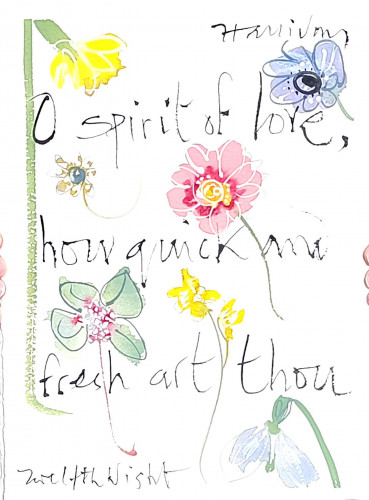 O spirit of love,
how quick and
fresh art thou
Twelfth Night